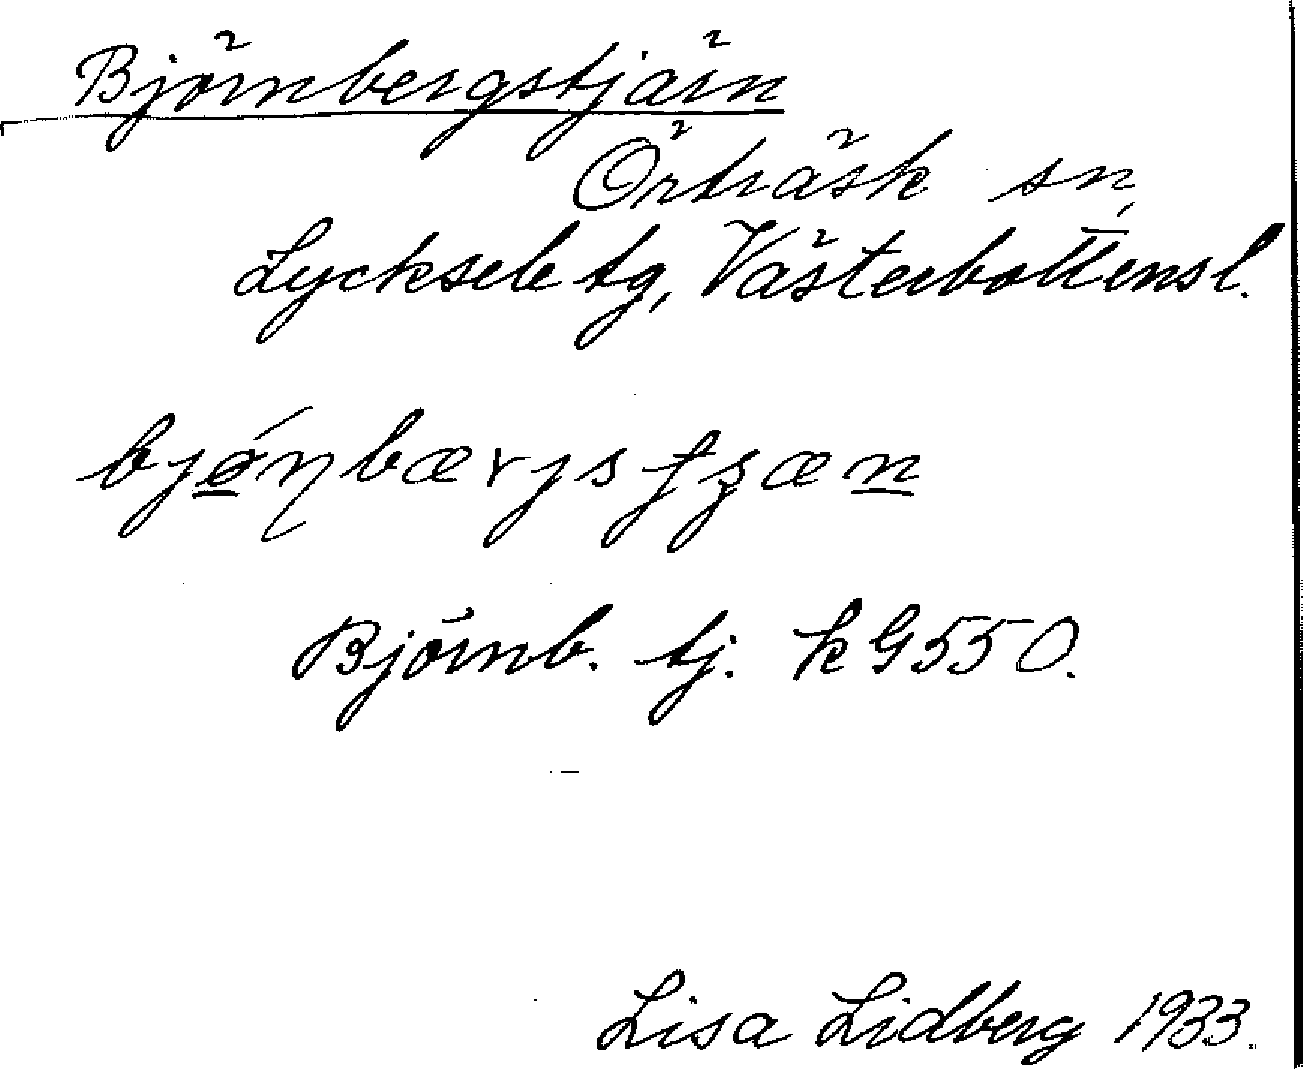 Björnbergstjärn
Örträsk sn,
Lycksele tg, Västerbottensl.
bjǿ̲ɳbærjsʈʂæn̲
Björnb. tj. k G 550.
Lisa Lidberg 1933.